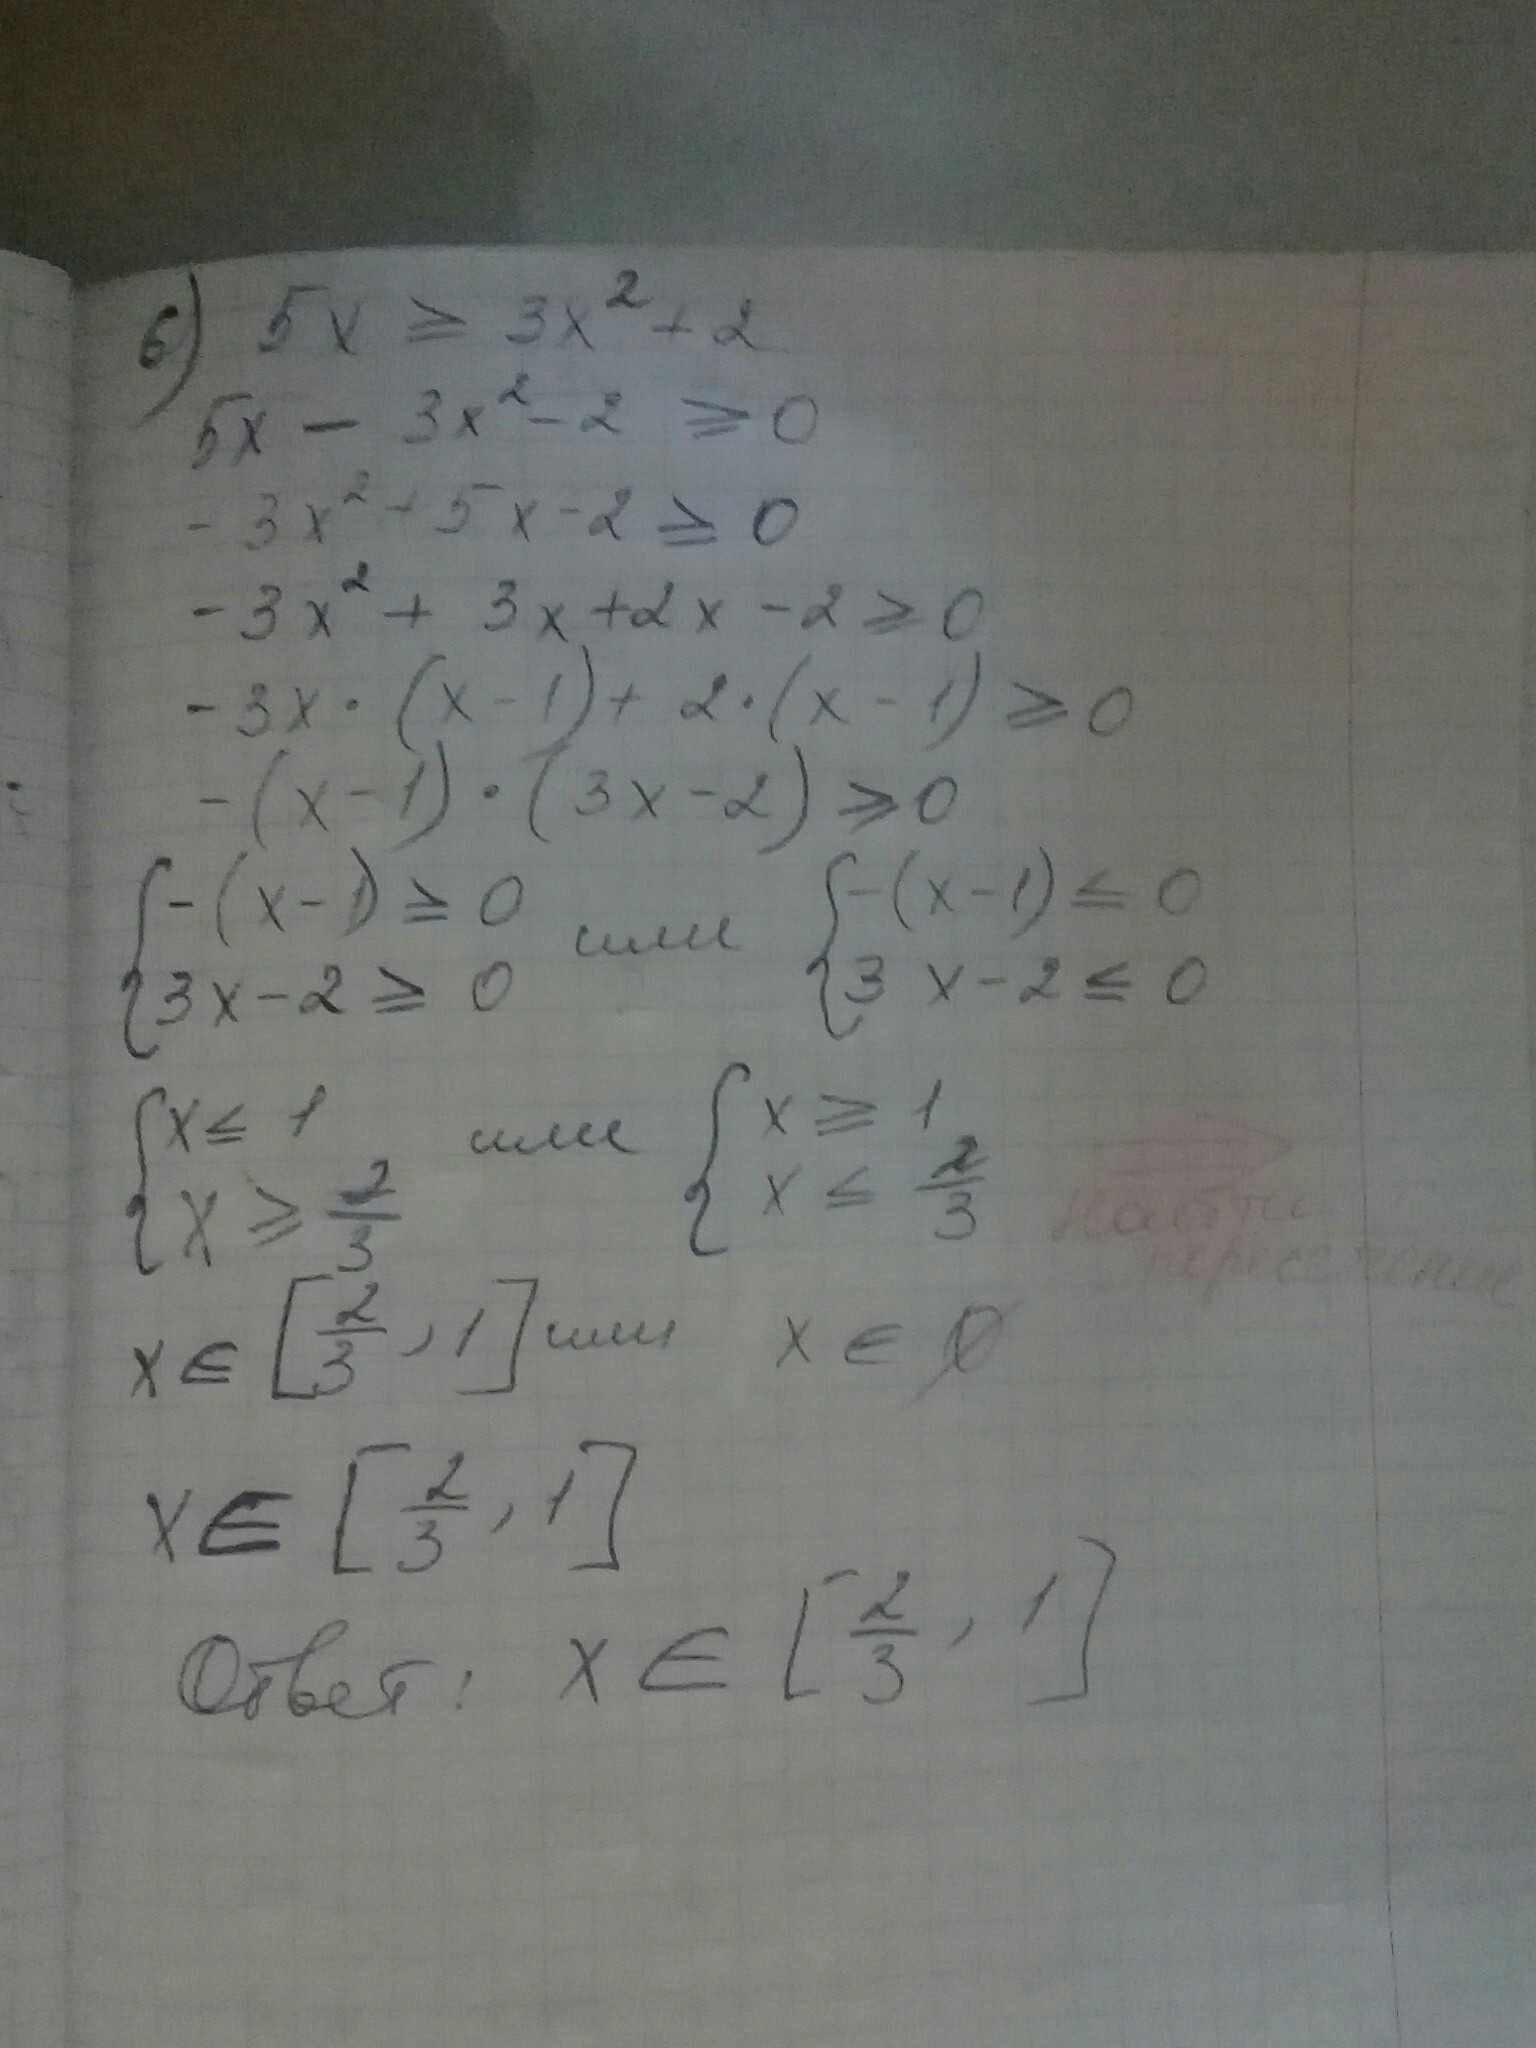 б) 5x ≥ 3x² + 2
5x - 3x² - 2 ≥ 0
- 3x² + 5x - 2 ≥ 0
- 3x² + 3x + 2x - 2 ≥ 0
- 3x · (x - 1) + 2 · (x - 1) ≥ 0
- (x - 1) · (3x - 2) ≥ 0
{ - (x - 1) ≥ 0 или { - (x - 1) ≤ 0
3x - 2 ≥ 0 3x - 2 ≤ 0
{ x ≤ 1 или { x ≥ 1
x ≥ 2/3 x ≤ 2/3
Найти
пересечение
x ∈ [2/3, 1] или x ∈ ∅
x ∈ [2/3, 1]
Ответ: x ∈ [2/3, 1]